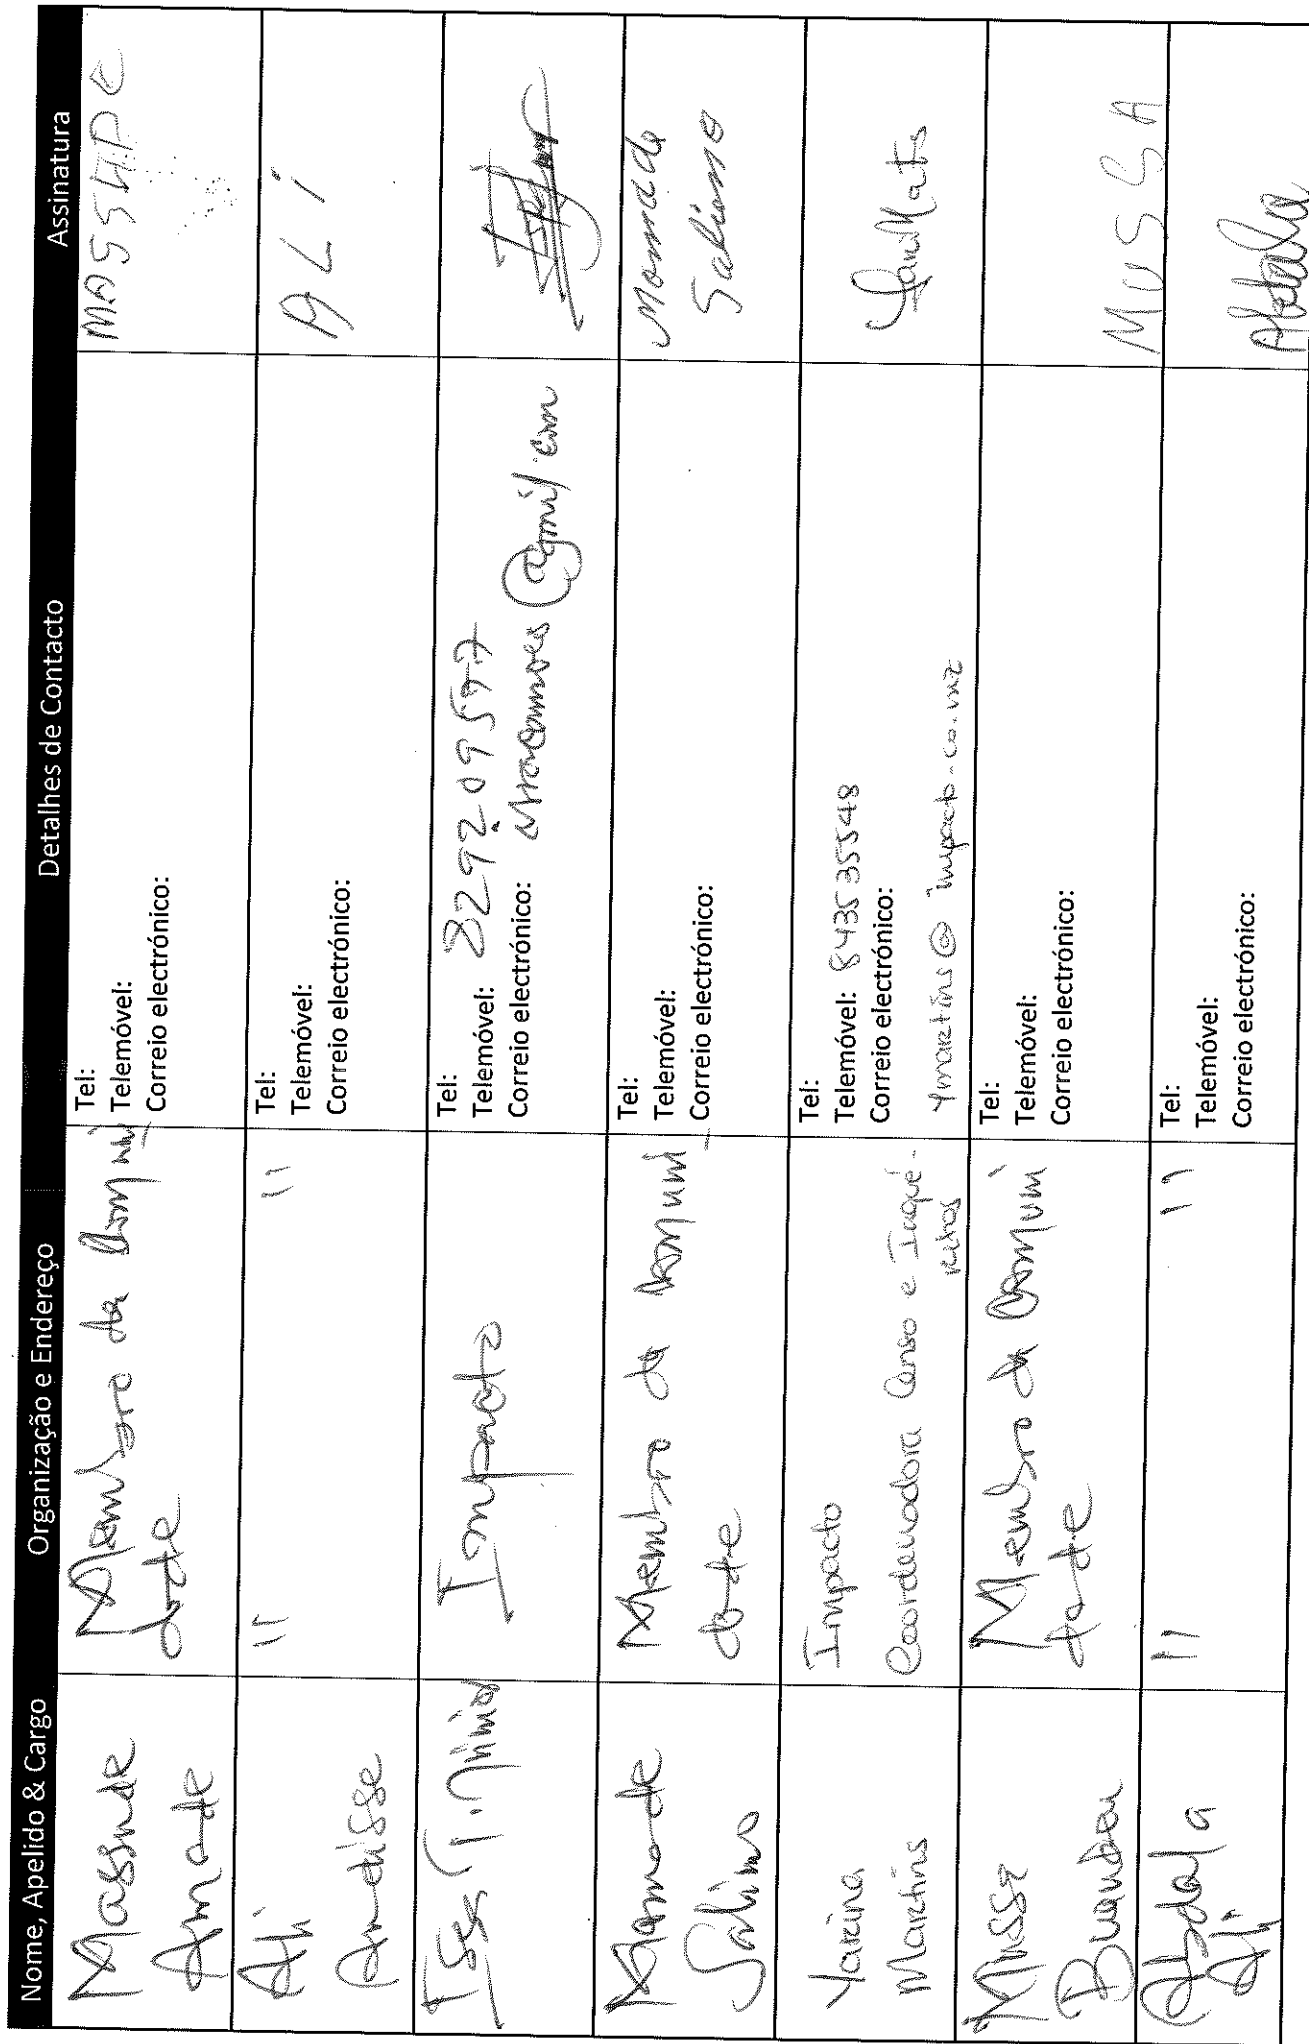 Nome, Apelido & Cargo
Organização e Endereço
Detalhes de Contacto
Assinatura
Massude
Amade
Membro da Comuni
dade
Tel:
Telemóvel:
Correio electrónico:
MASSUDE
Ali
Andisse
" "
Tel:
Telemóvel:
Correio electrónico:
ALi
Impacto
Tel:
Telemóvel: 829209597
Correio electrónico: @gmil.com
Mamade
Salimo
Membro da Comuni
dade
Tel:
Telemóvel:
Correio electrónico:
Momade
Salimo
Yarina
Martins
Impacto
Coordenadora Censo e Inqué-
ritos
Tel:
Telemóvel: 843535548
Correio electrónico:
ymartins@impacto.co.mz
Musse
Membro da Comuni
dade
Tel:
Telemóvel:
Correio electrónico:
MUSSA
Abdala
Ali
" "
Tel:
Telemóvel:
Correio electrónico: